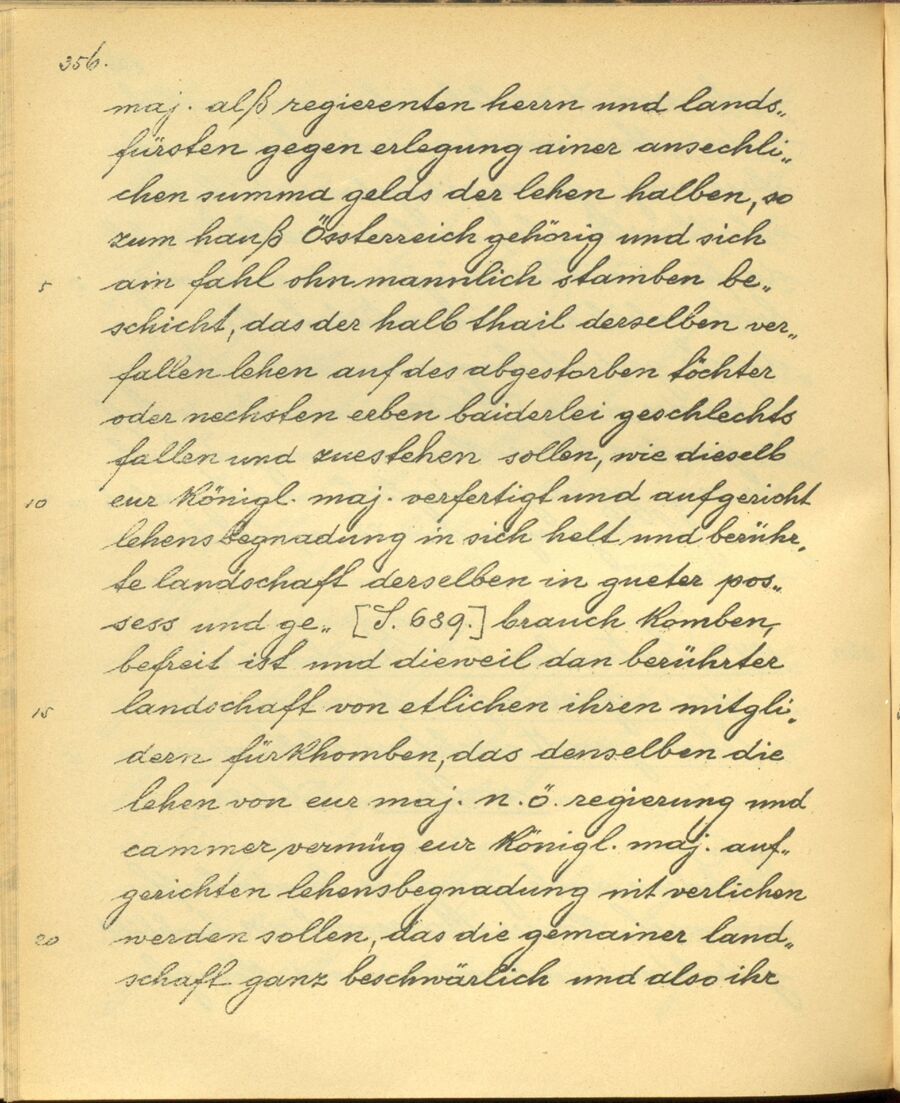 356.
maj. alß regierenten herrn und lands„
fürsten gegen erlegung ainer ansechli„
chen summa gelds der lehen halben, so
zum hauß Össterreich gehörig und sich
5 ain fahl ohn mannlich stamben be„
schicht, das der halb thail derselben ver„
fallen lehen auf des abgestorben töchter
oder nechsten erben baiderlei geschlechts
fallen und zuestehen sollen, wie dieselb
10 eur Königl. maj. verfertigt und aufgericht
lehensbegnadung in sich helt und berühr„
te landschaft derselben in gueter pos„
sess und ge„ [S. 689.] brauch komben,
befreit ist und dieweil dan berührter
15 landschaft von etlichen ihren mitgli„
dern fürkhomben, das denselben die
lehen von eur maj. n. ö. regierung und
cammer vermüg eur Königl. maj. auf„
gerichten lehensbegnadung nit verlichen
20 werden sollen, das die gemainer land„
schaft ganz beschwärlich und also ihr